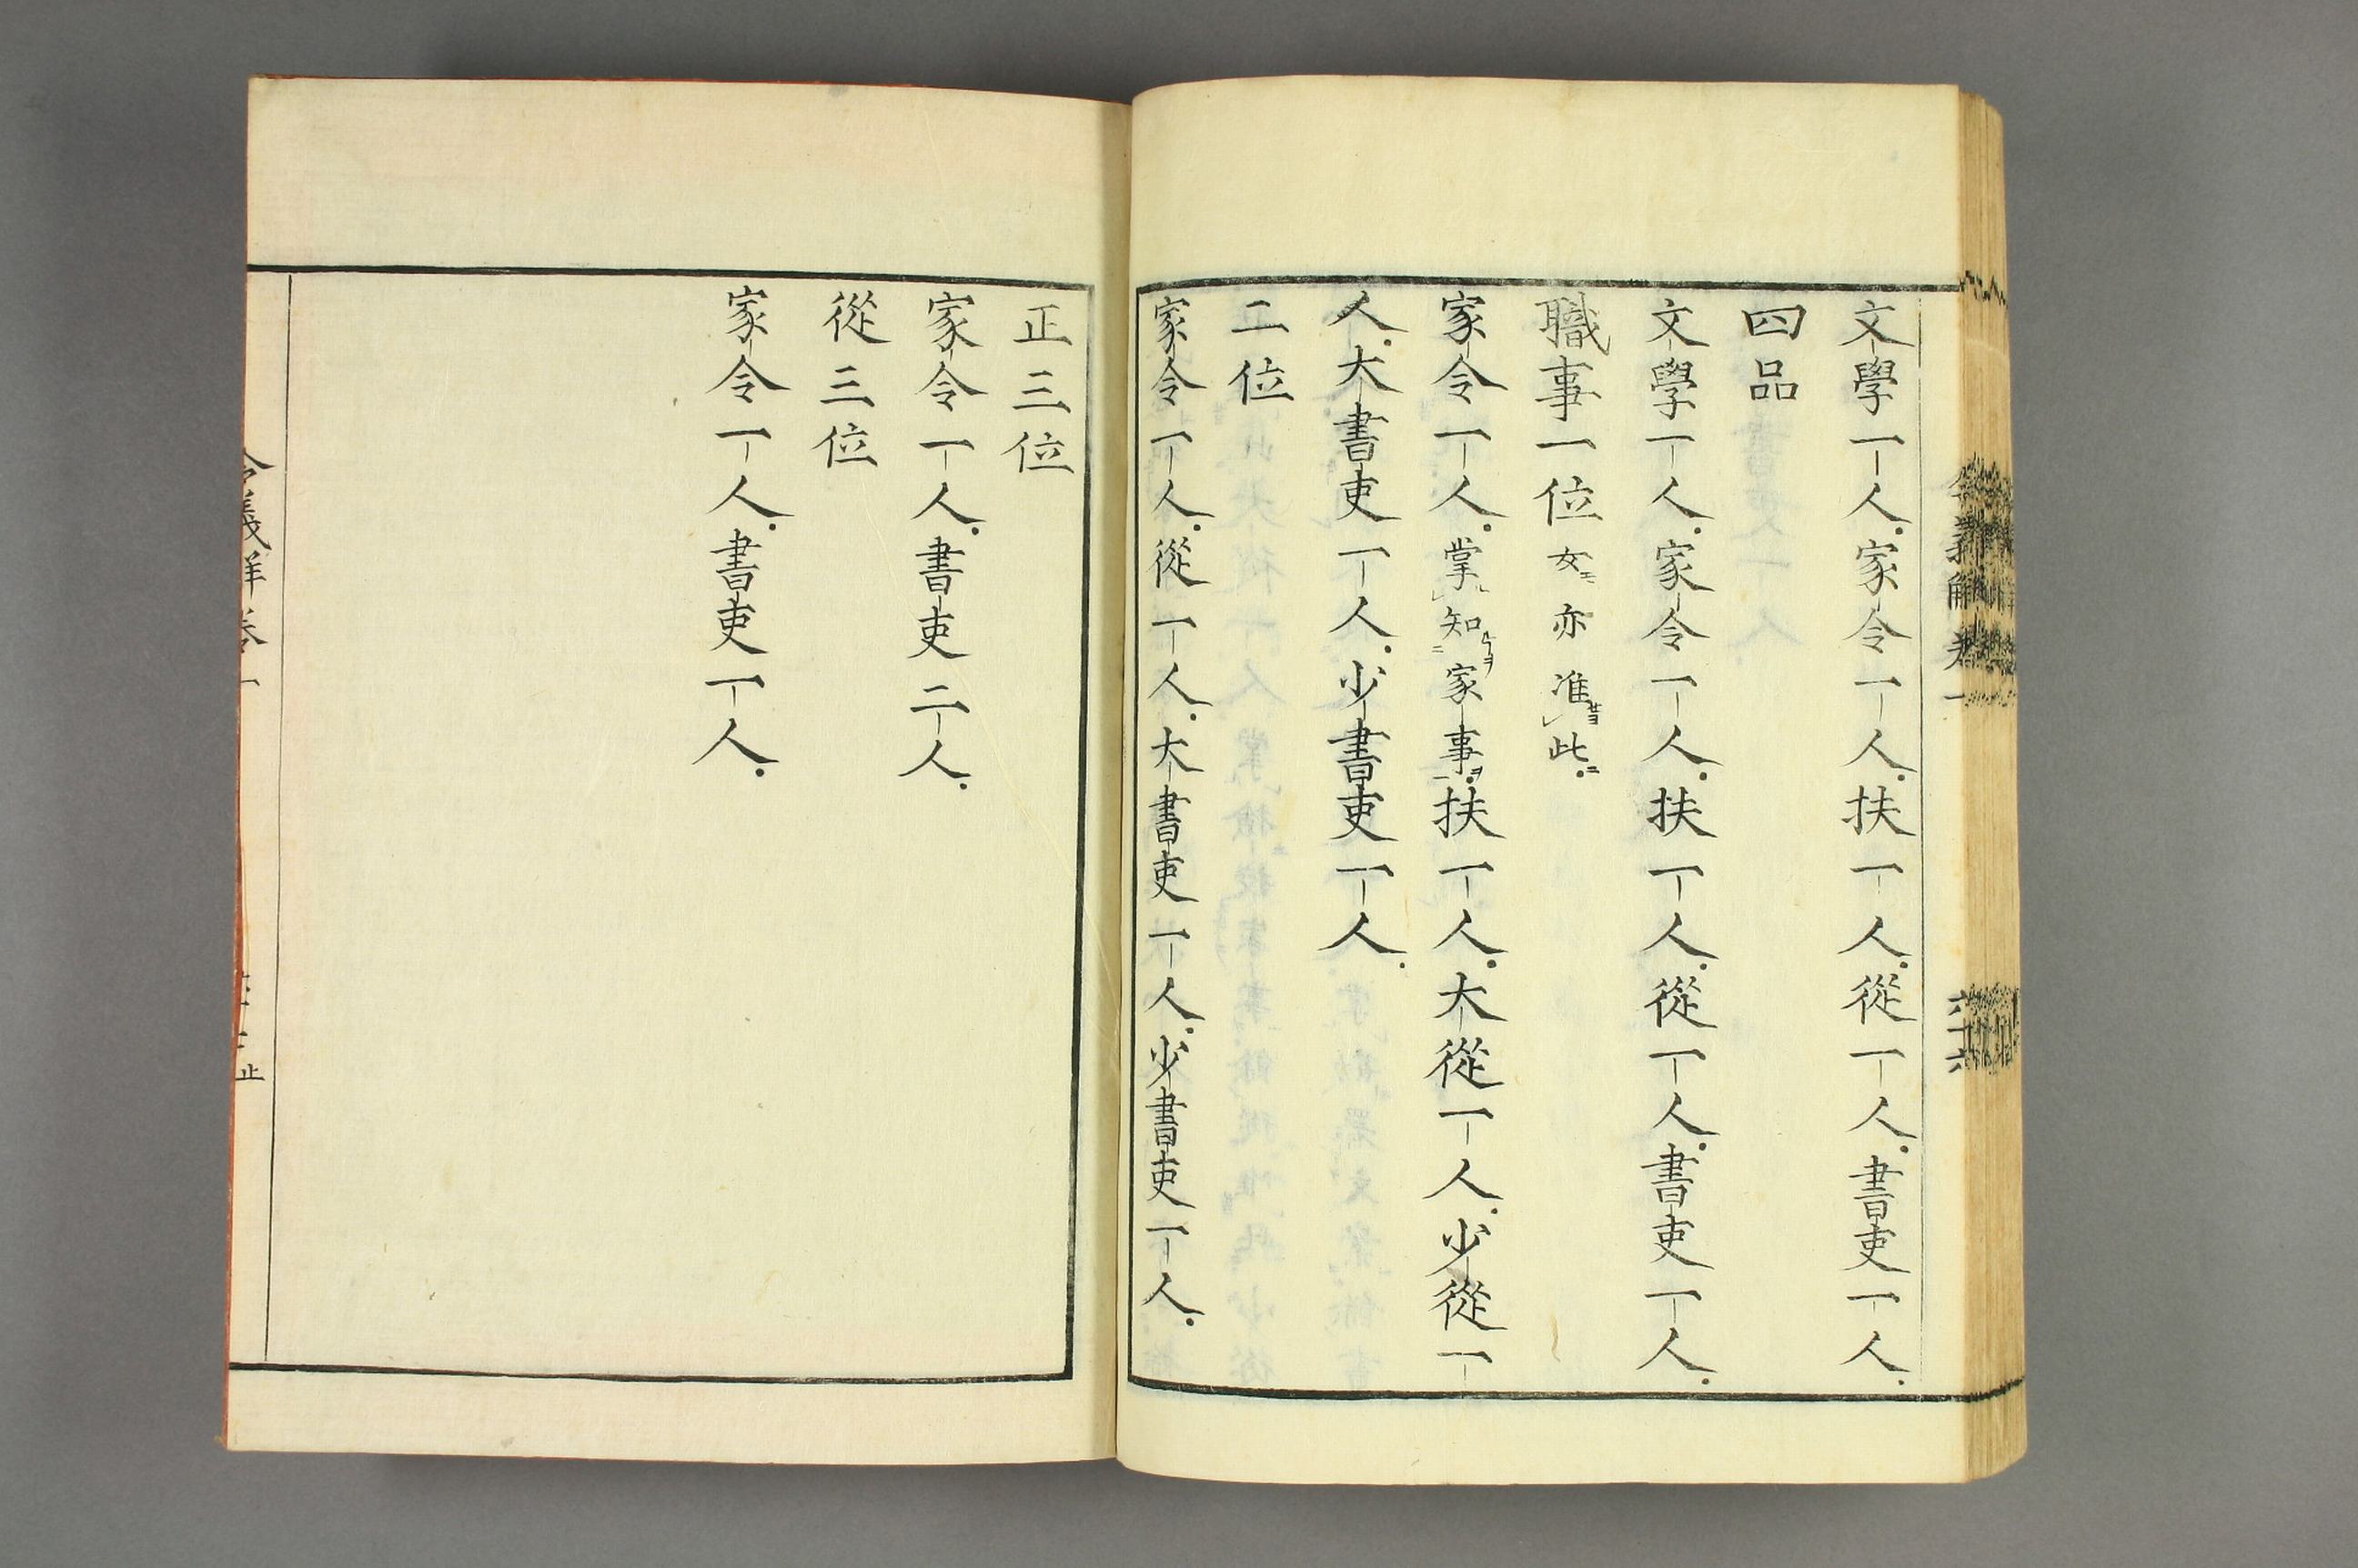 文學一人家令一人扶一人從一人書吏一人
四品
文學一人家令一人扶一人從一人書吏一人
職事一位女亦准此
家令一人掌知家事扶一人大從一人少從一
人大書吏一人少書吏一人
二位
家令一人從一人大書吏一人少書吏一人
正三位
家令一人書吏二人
從三位
家令一人書吏一人